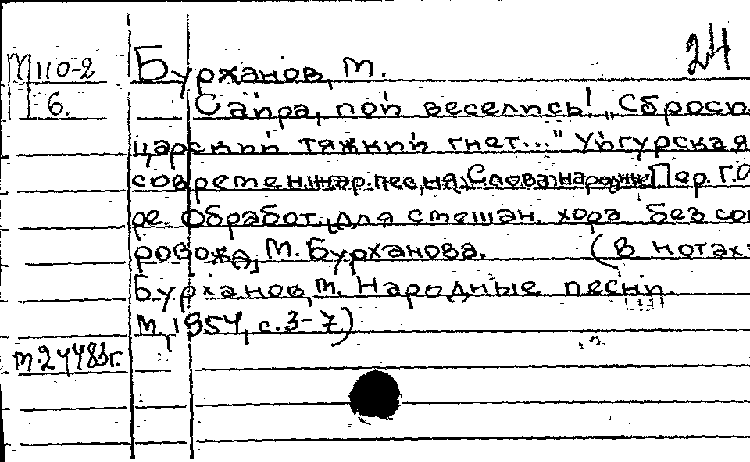 24
М110-2 Бурханов, М.
6. Сайра, пой веселись! „Сброси
царский тяжкий гнет..." Уйгурская
современ. нар. песня. Слова народные Пер. Г.О
ре. Обработ. для смешан. хора без со
ровожд. М. Бурханова. (В нотах:
Бурханов, М. Народные песни.
М., 1954, с. 3-7)
М.24483г.